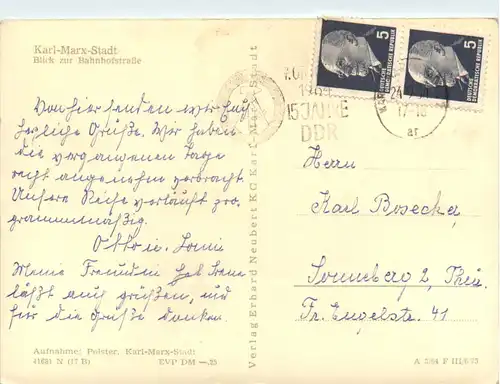 Karl-Marx-Stadt
Blick zur Bahnhofstraße
Von hier senden wir Euch
herzliche Grüße. Wir haben
die vergangenen Tage
recht angenehm verbracht.
Unsere Reise verläuft pro-
grammmäßig.
Otto u.
Meine Freundin
läßt auch grüßen, und
für die Grüße danken.
Aufnahme: Polster, Karl-Marx-Stadt
41681 N (17 B) EVP DM —.25
Verlag Erhard Neubert KG Karl-Marx-Stadt
5
DEUTSCHE DEMOKRATISCHE REPUBLIK
5
DEUTSCHE DEMOKRATISCHE REPUBLIK
1964
15 JAHRE
DDR
ar
Herrn
Karl Bosecker,
Sonneberg 2, Thür.
Fr. Engelstr. 41